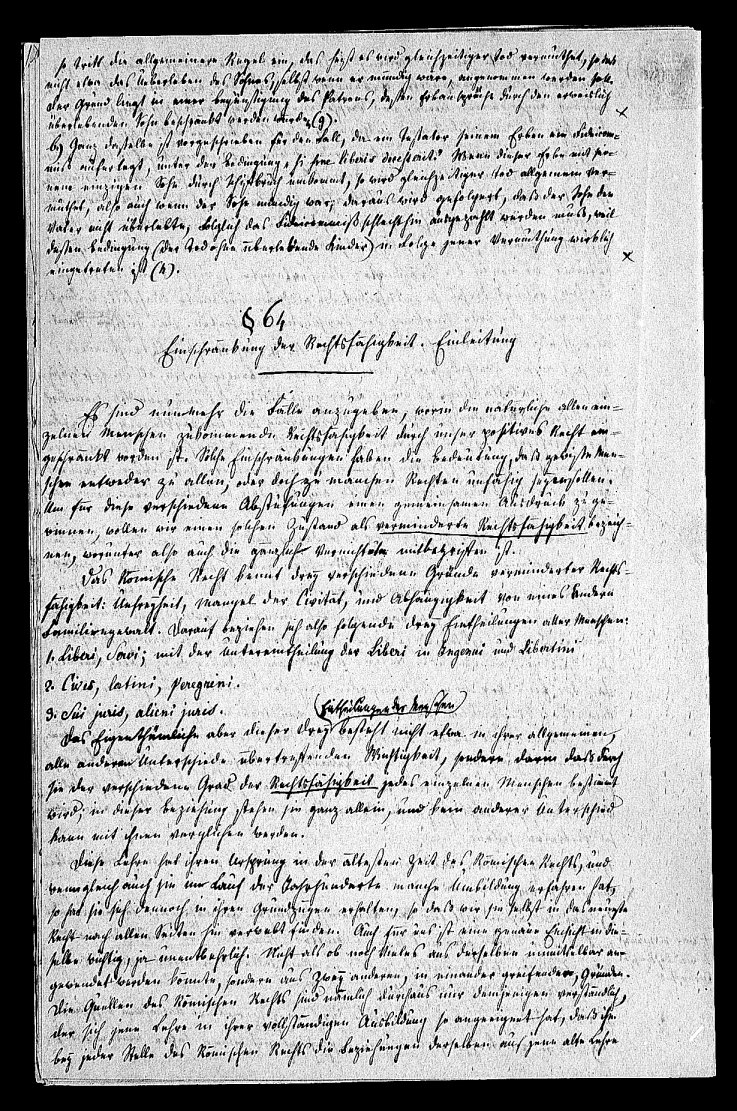 so tritt die allgemeinere Regel ein, das heißt es wird gleichzeitiger Tod vermuthet, so daß
nicht etwa das Ueberleben des Sohnes, selbst wenn er mündig wäre, angenommen werden soll.
Der Grund liegt in einer Begünstigung des Patrons, dessen Erbansprüche durch den erweislich
überlebenden Sohn beschränkt werden würden (g).
b) Ganz dasselbe ist vorgeschrieben für den Fall, da ein Testator seinem Erben ein Fideicom-
miß auferlegt, unter der Bedingung: si sine liberis decesserit. Wenn dieser Erbe mit sei-
nem einzigen Sohn durch Schiffbruch umkommt, so wird gleichzeitiger Tod allgemein ver-
muthet, also auch wenn der Sohn mündig war; daraus wird gefolgert, daß der Sohn den
Vater nicht überlebte, folglich das Fideicommiß schlechthin ausgezahlt werden muß, weil
dessen Bedingung (der Tod ohne überlebende Kinder) in Folge jener Vermuthung wirklich
eingetreten ist (h).
§ 64
Einschränkung der Rechtsfähigkeit. Einleitung
Es sind nunmehr die Fälle anzugeben, worin die natürliche allen ein-
zelnen Menschen zukommende Rechtsfähigkeit durch unser positives Recht ein-
geschränkt worden ist. Solche Einschränkungen haben die Bedeutung, daß gewisse Men-
schen entweder zu allen, oder doch zu manchen Rechten unfähig seyn sollen.
Um für diese verschiedene Abstufungen einen gemeinsamen Ausdruck zu ge-
winnen, wollen wir einen solchen Zustand als verminderte Rechtsfähigkeit bezeich-
nen, worunter also auch die gänzlich vernichtete mitbegriffen ist.
Das Römische Recht kennt drey verschiedene Gründe verminderter Rechts-
fähigkeit: Unfreyheit, Mangel der Civität, und Abhängigkeit von eines Andern
Familiengewalt. Darauf beziehen sich also folgende drey Eintheilungen aller Menschen:
1. Liberi, Servi; mit der Unterabtheilung der Liberi in Ingenui und Libertini
2. Cives, latini, peregrini.
3. Sui juris, alieni juris.
(Eintheilungen der Menschen)
Das Eigenthümliche aber dieser drey besteht nicht etwa in ihrer allgemeinen,
alle anderen Unterschiede übertreffenden Wichtigkeit, sondern darin daß durch
sie der verschiedene Grad der Rechtsfähigkeit jedes einzelnen Menschen bestimmt
wird; in dieser Beziehung stehen sie ganz allein, und kein anderer Unterschied
kann mit ihnen verglichen werden.
Diese Lehre hat ihren Ursprung in der ältesten Zeit des Römischen Rechts, und
wenngleich auch sie im Lauf der Jahrhunderte manche Umbildung erfahren hat,
so hat sie sich dennoch in ihren Grundzügen erhalten, so daß wir sie selbst in das neueste
Recht nach allen Seiten hin verwebt finden. Auch für uns ist eine genaue Einsicht in die-
selbe wichtig, ja unentbehrlich. Nicht als ob noch Vieles aus derselben unmittelbar an-
gewendet werden könnte, sondern aus zwey anderen, in einander greifenden, Gründen.
Die Quellen des Römischen Rechts sind nämlich durchaus nur demjenigen verständlich,
der sich jene Lehre in ihrer vollständigen Ausbildung so angeeignet hat, daß ihm
bey jeder Stelle des Römischen Rechts die Beziehungen derselben auf jene alte Lehre